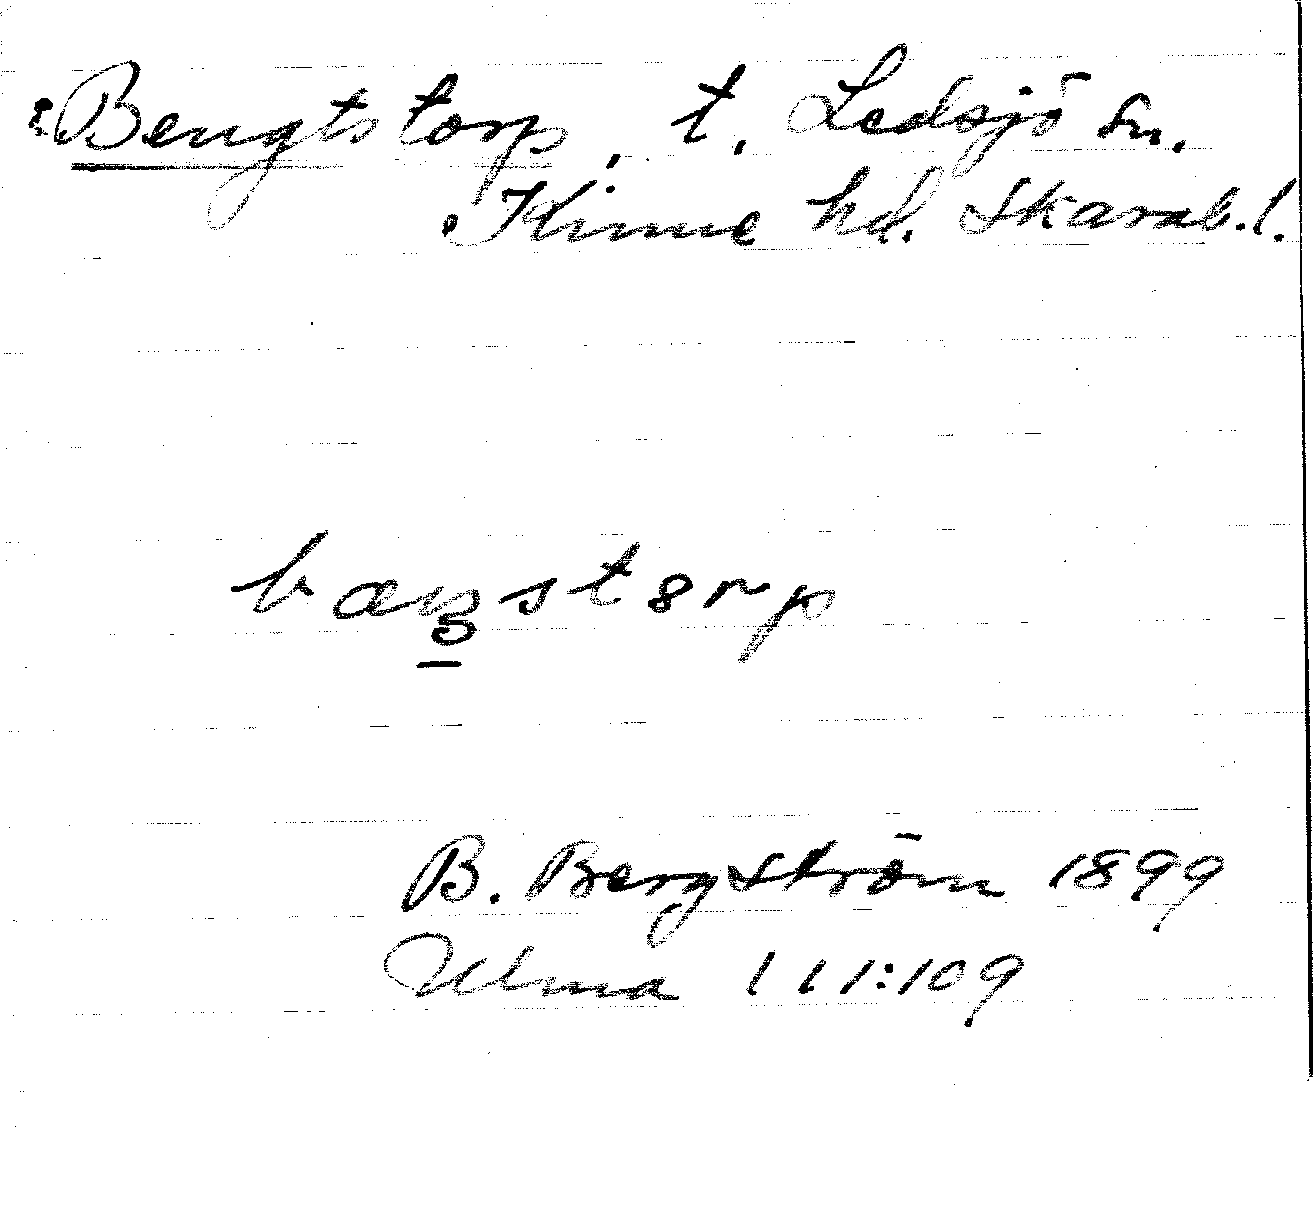 Bengtstorp, t. Ledsjö sn.
Kinne hd. Skarab. l.
B. Bergström 1899
Ulma 111:109